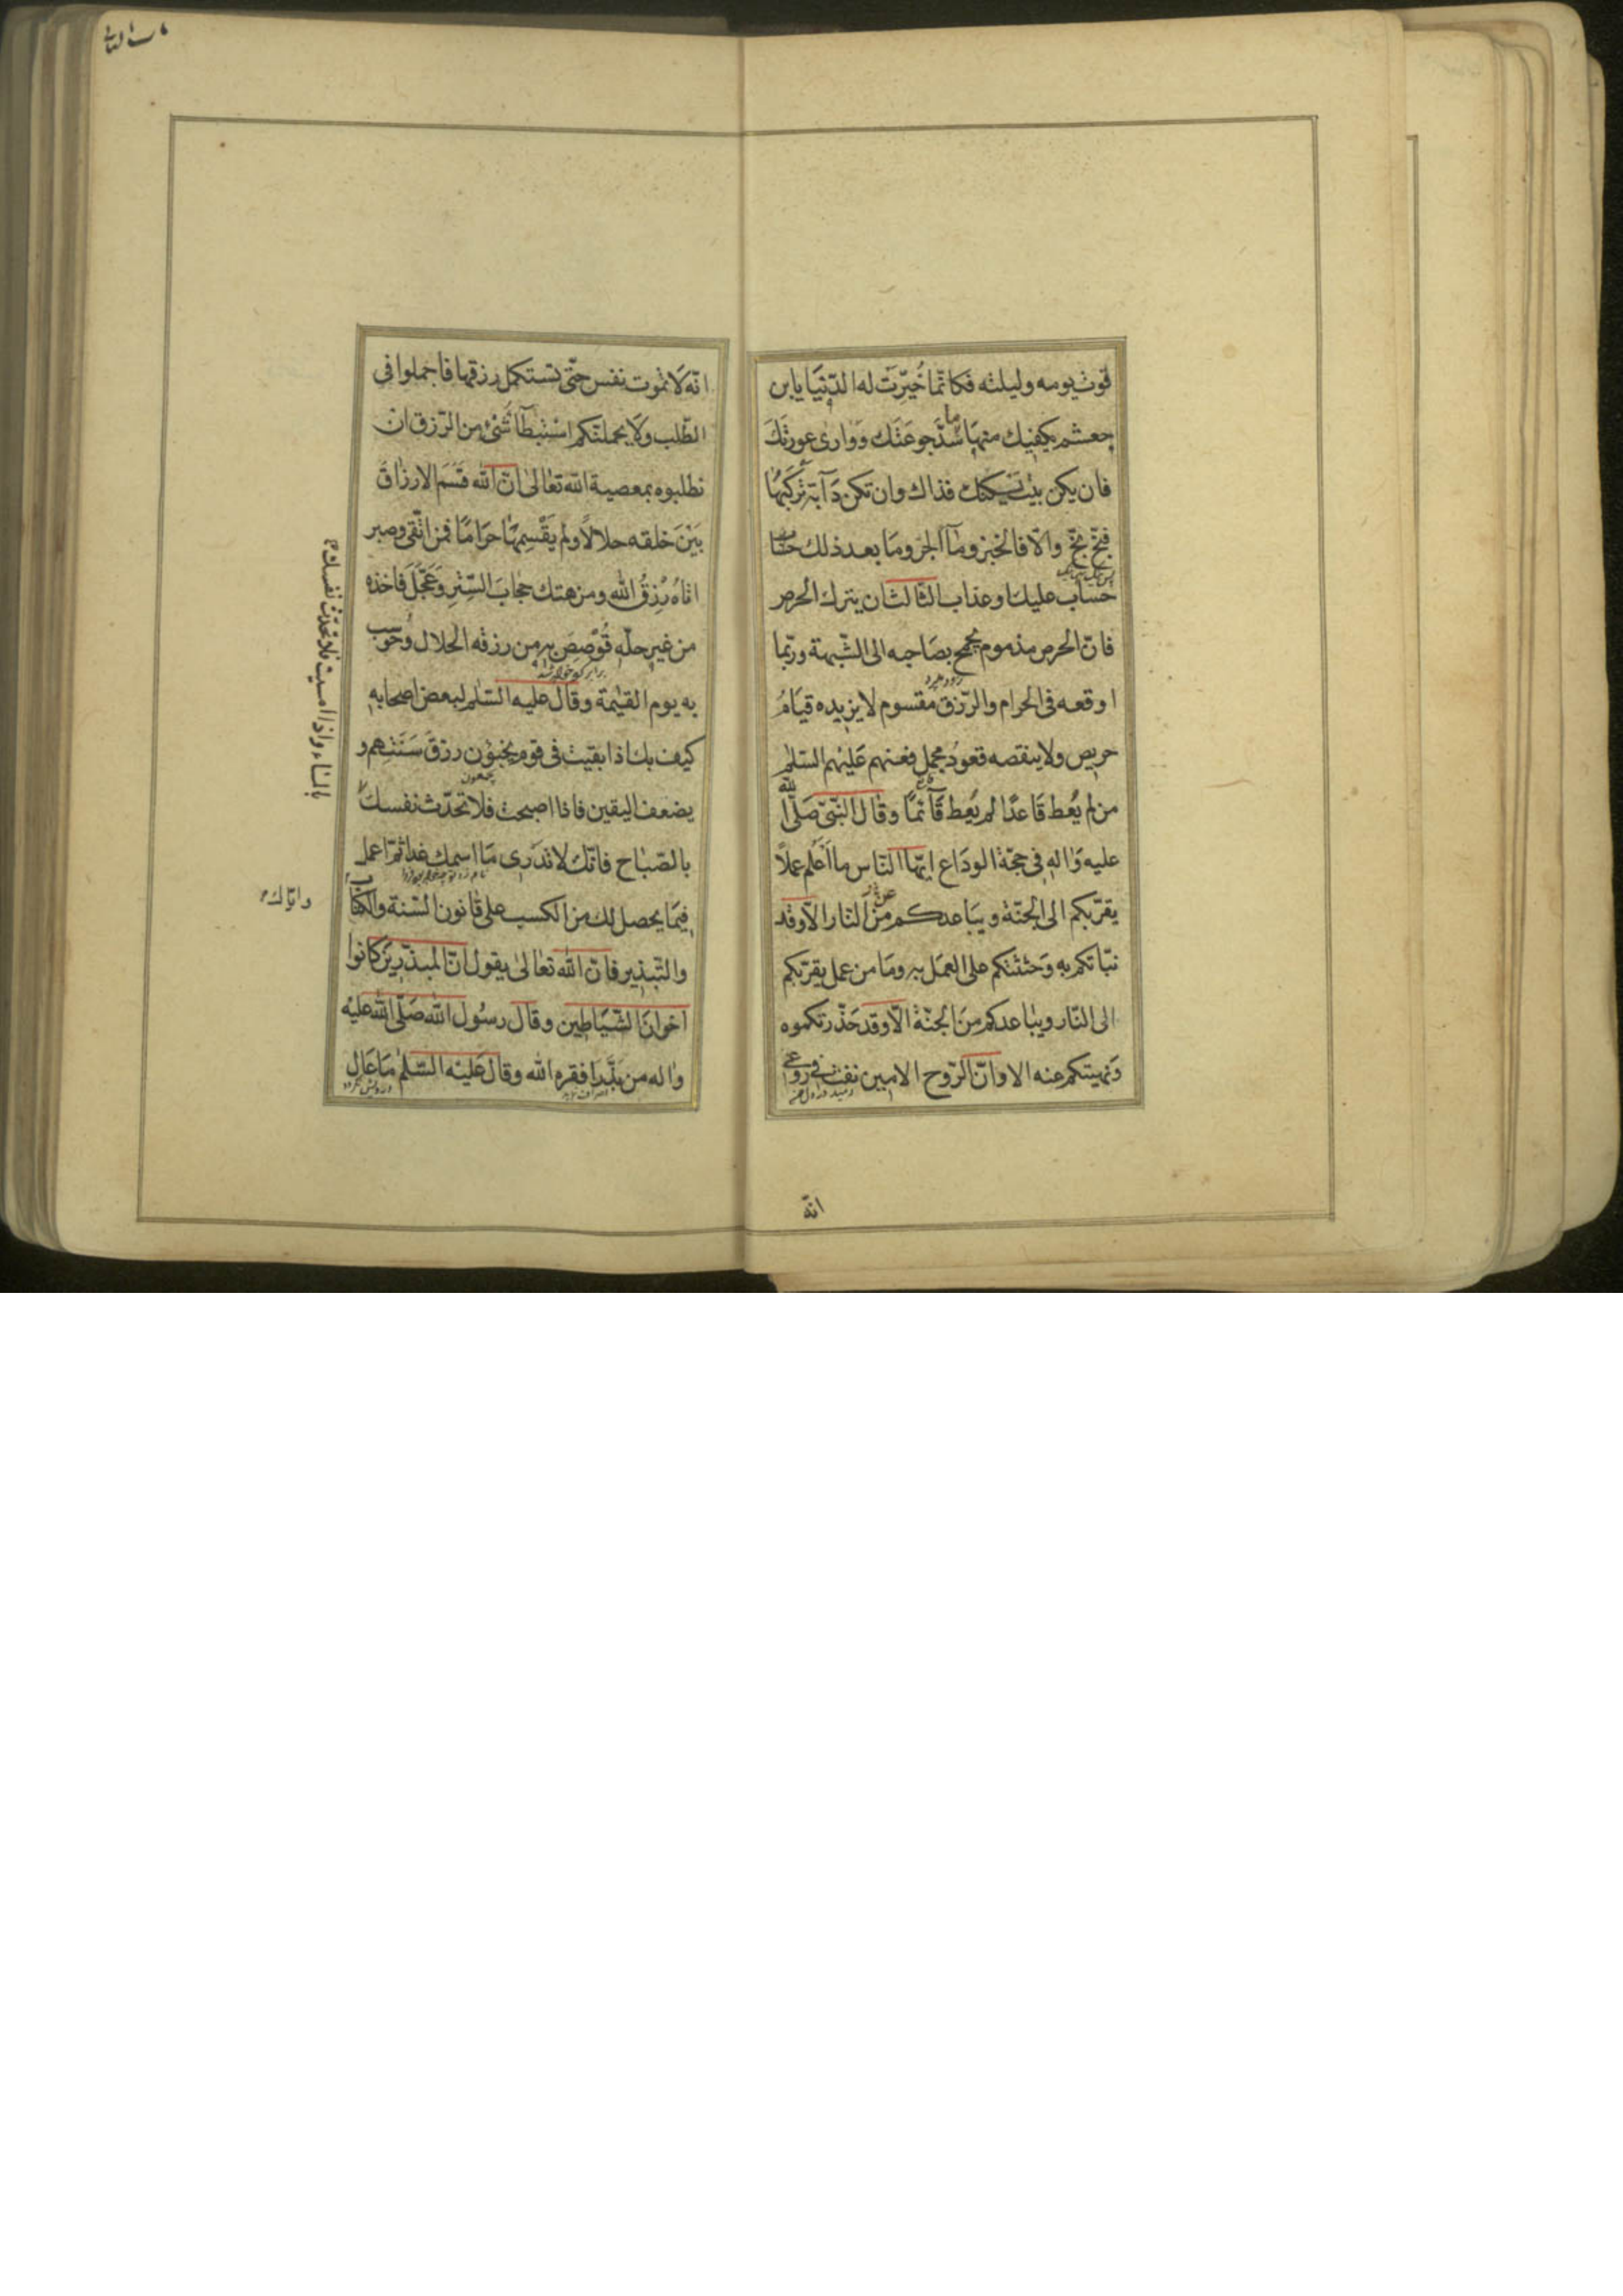 قوت يومه وليلته فكانّما خُيّرت له الدّنيا يا بن
جعشم يكفيك منها ما سدّ جوعتك ووارى عورتك
فان يكن بيت يسكنك فذاك وان تكن دآبّة تركبها
فبخّ بخّ والّا فالخبز ومآ الجرّ وما بعد ذلك
حساب عليك او عذاب الثالث ان يترك الحرص
فانّ الحرص مذموم يجمح بصاحبه الى الشّبهة وربّما
اوقعه فى الحرام والرّزق مقسوم لا يزيده قيامُ
حريص ولا ينقصه قعود مجمل فعنهم عليهم السّلم
من لم يُعط قاعدًا لم يُعط قآئمًا وقال النّبىّ صلّى الله
عليه واله فى حجّة الوداع ايّها النّاس ما اعلم عملًا
يقرّبكم الى الجنّة ويباعدكم من النّار الّا وقد
نبّاتكم به وحثثتكم على العمل به وما من عمل يقرّبكم
الى النّار ويباعدكم من الجنّة الّا وقد حذّرتكموه
ونهيتكم عنه الا وانّ الرّوح الامين نفث فى روعى
انّه
انّه لا تموت نفس حتّى تستكمل رزقها فاجملوا فى
الطّلب ولا يحملنّكم استبطآء شىء من الرّزق ان
تطلبوه بمعصية الله تعالى انّ الله قسم الارزاق
بين خلقه حلالًا ولم يقسمها حرامًا فمن اتّقى وصبر
اتاه رزق الله ومن هتك حجاب السّتر وعجّل فاخذه
من غير حلّه قوصص به من رزقه الحلال وحوسب
به يوم القيمة وقال عليه السّلم لبعض اصحابه
كيف بك اذا بقيت فى قوم يخبؤن رزق سنتهم و
يضعف اليقين فاذا اصبحت فلا تحدّث نفسك
بالمساء واذا امسيت فلا تحدّث نفسك
بالصّباح فانّك لا تدرى ما اسمك غدا ثمّ اعمل
فيما يحصل لك من الكسب على قانون السّنة والكتاب
وايّاك
والتّبذير فانّ الله تعالى يقول انّ المبذّرين كانوا
اخوان الشّياطين وقال رسول الله صلّى الله عليه
واله من بذّر افقره الله وقال عليه السّلم ما عال